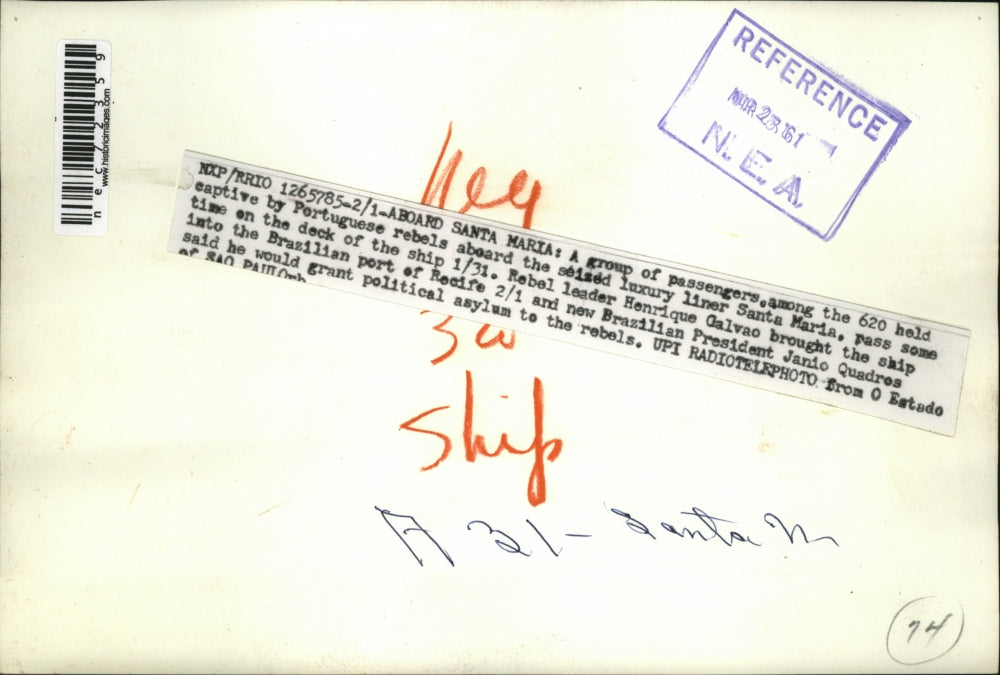 REFERENCE
MAR 28 '61
N.E.A.
nec72359
www.historicimages.com
NXP/RRIO 1265785-2/1-ABOARD SANTA MARIA: A group of passengers, among the 620 held
captive by Portuguese rebels aboard the seized luxury liner Santa Maria, pass some
time on the deck of the ship 1/31. Rebel leader Henrique Galvao brought the ship
into the Brazilian port of Recife 2/1 and new Brazilian President Janio Quadros
said he would grant political asylum to the rebels. UPI RADIOTELEPHOTO from O Estado
of SAO PAULO
Ship
31- Santa M
74